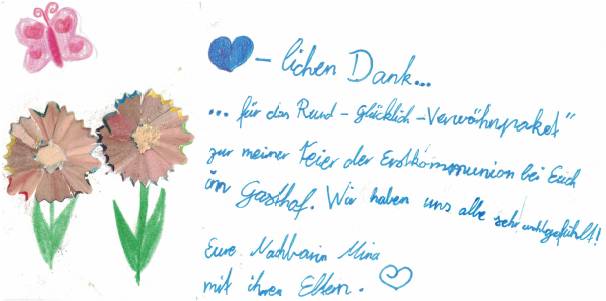 💙-lichen Dank...
... für das Rund-Glücklich-Verwöhnpaket"
zur meiner Feier der Erstkommunion bei Euch
im Gasthof. Wir haben uns alle sehr wohlgefühlt!
Eure Nachbarin Mina
mit ihren Eltern. ♡